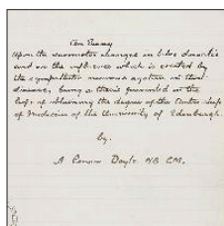 An Essay
Upon the vasomotor changes in tabes dorsalis
and on the influence which is exerted by
the sympathetic nervous system in that
disease, being a thesis presented in the
hope of obtaining the degree of the Doctorship
of Medicine of the University of Edinburgh.
by.
A Conan Doyle MB CM.